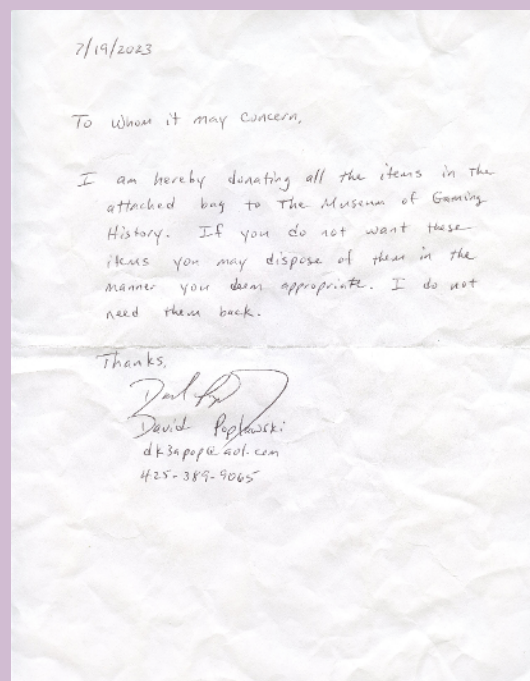 7/19/2023
To Whom it may Concern,
I am hereby donating all the items in the
attached bag to The Museum of Gaming
History. If you do not want these
items you may dispose of them in the
manner you deem appropriate. I do not
need them back.
Thanks,
David Popkowski
dk3apop@aol.com
425-389-9065